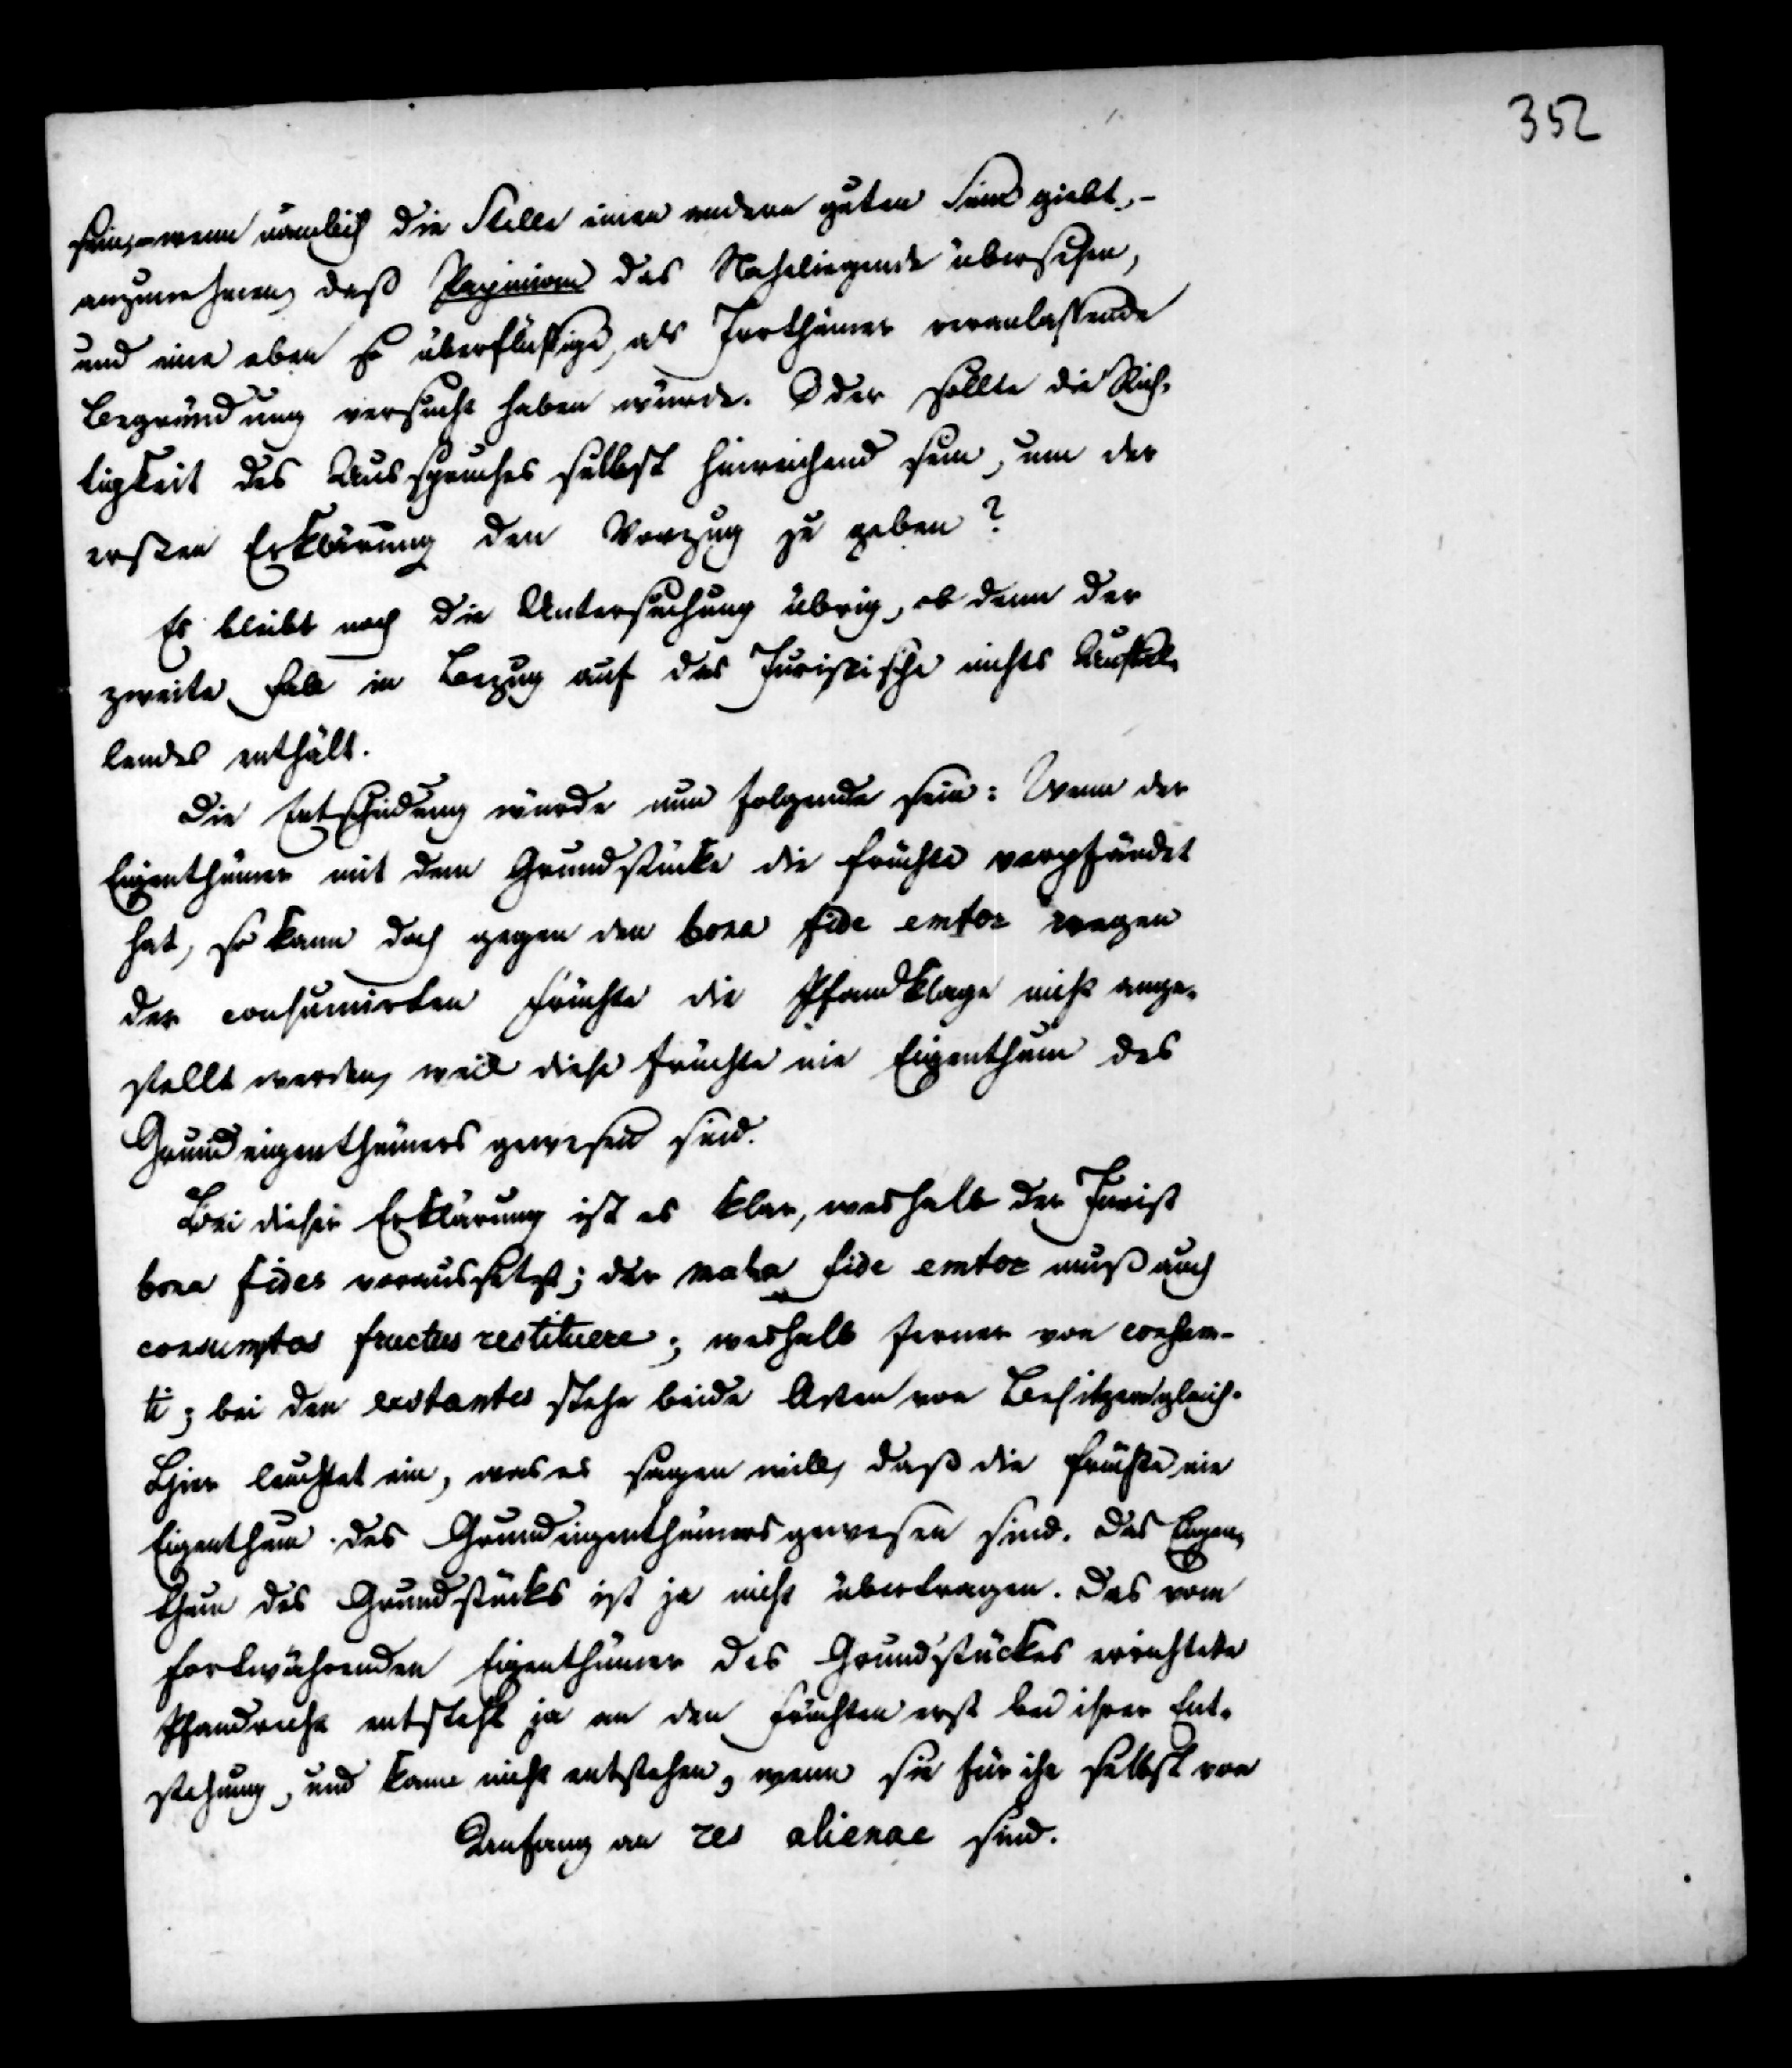 352
sein, - wenn nämlich die Stelle einen andern guten Sinn giebt, -
anzunehmen, daß Papinian das Naheliegende übersehen,
und eine eben so überflüssige, als Irrthümer veranlassende
Begründung versucht haben würde. Oder sollte die Rich-
tigkeit des Ausspruches selbst hinreichend sein, um der
ersten Erklärung den Vorzug zu geben?
Es bleibt noch die Untersuchung übrig, ob denn der
zweite Fall in Bezug auf das Juristische nichts Auffal-
lendes enthält.
Die Entscheidung würde nun folgende sein: Wenn der
Eigenthümer mit dem Grundstücke die Früchte verpfändet
hat, so kann doch gegen den bona fide emtor wegen
der consumirten Früchte die Pfandklage nicht ange-
stellt werden, weil diese Früchte nie Eigenthum des
Grundeigenthümers gewesen sind.
Bei dieser Erklärung ist es klar, weshalb der Jurist
bona fides voraussetzt; der mala fide emtor muß auch
consumptos fructus restituere; weshalb ferner von consum-
ti; bei den exstantes stehe beide Arten von Besitzern gleich.
Hier leuchtet ein, was es sagen will, daß die Früchte nie
Eigenthum des Grundeigenthümers gewesen sind. Das Eigen-
thum des Grundstücks ist ja nicht übertragen. Das vom
fortwährenden Eigenthümer des Grundstückes errichtete
Pfandrecht entsteht ja an den Früchten erst bei ihrer Ent-
stehung, und kann nicht entstehen, wenn sie für ihn selbst von
Anfang an res alienae sind.